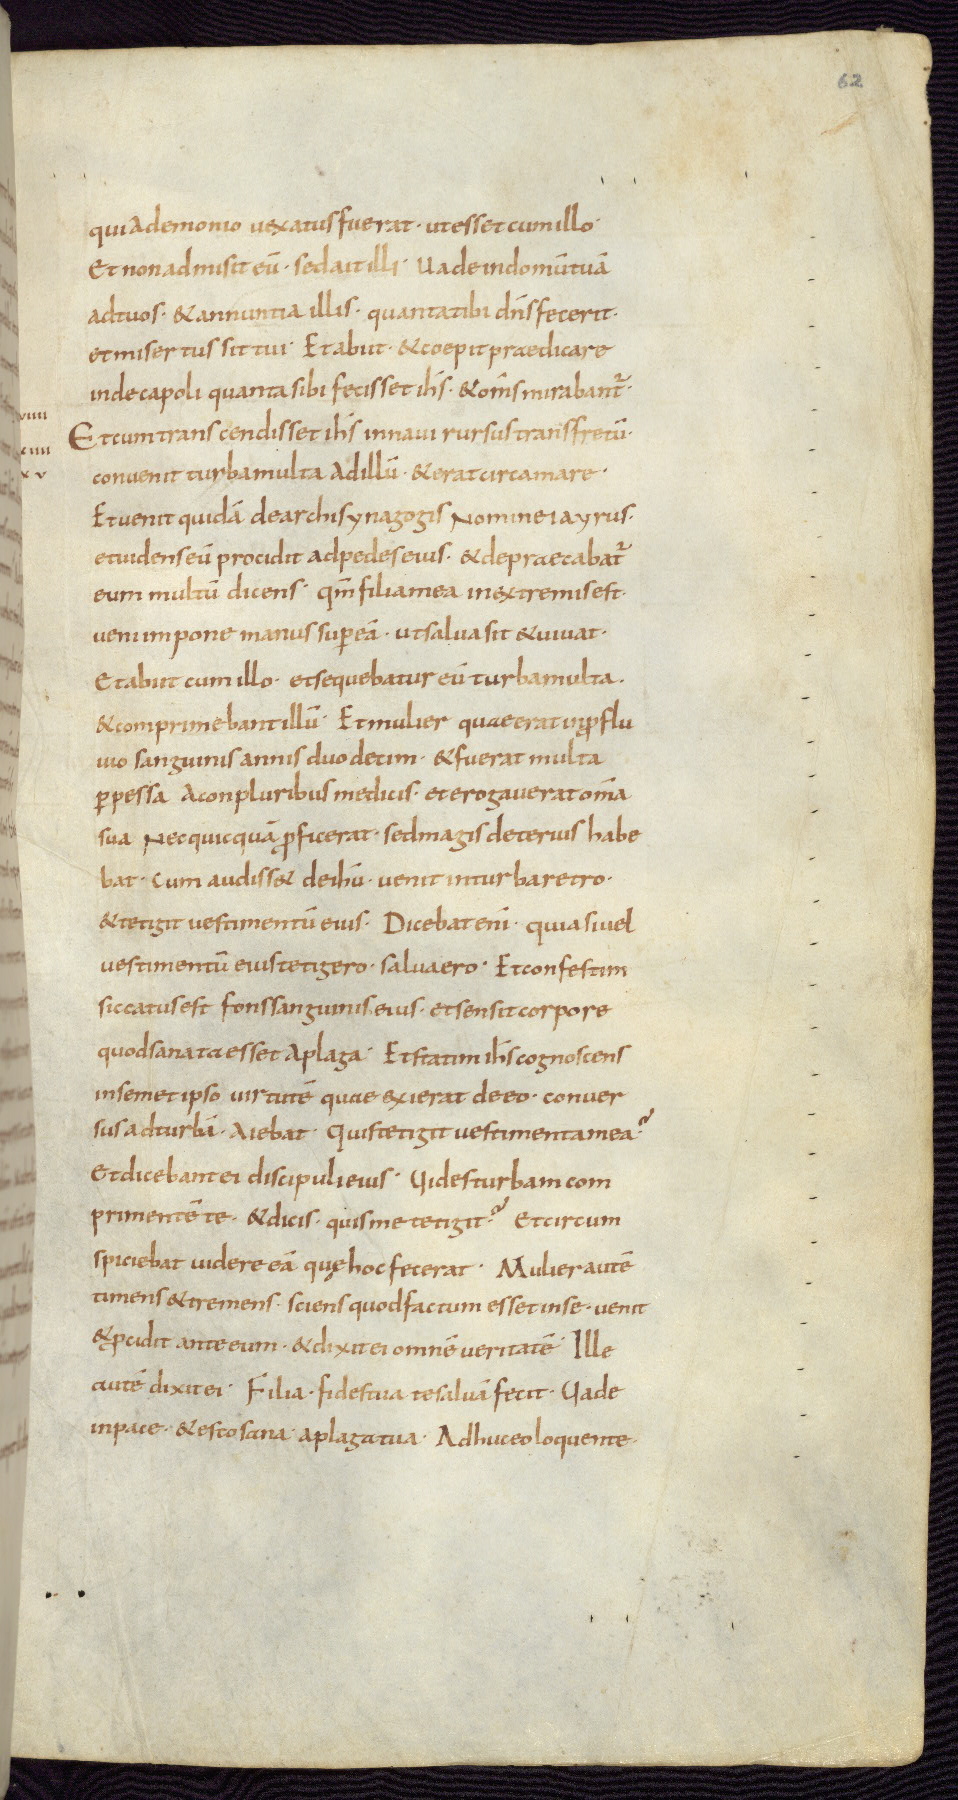 62
qui a demonio vexatus fuerat · ut esset cum illo ·
Et non admisit eū · sed ait illi · Uade in domū tuā
ad tuos · & annuntia illis · quanta tibi dn̄s fecerit ·
et misertus sit tui · Et abiit · & coepit praedicare
in decapoli quanta sibi fecisset ih̄s · & om̄s mirabant̄r ·
viiii
Et cum transcendisset ih̄s in navi rursus trans fretū ·
convenit turba multa ad illū · & erat circa mare ·
Et venit quidā de archisynagogis nomine iayrus ·
et uidens eū procidit ad pedes eius · & depraecabat̄r
eum multū dicens · qm̄ filia mea in extremis est ·
veni impone manus sup̄ eā · ut salua sit & uiuat ·
Et abiit cum illo · et sequebatur eū turba multa ·
& comprimebant illū · Et mulier quae erat in p̱flu
uio sanguinis annis duodecim · & fuerat multa
p̱pessa a conpluribus medicis · et erogaverat om̄a
sua nec quicquā p̱ficerat · sed magis deterius habe
bat · Cum audiss& de ihū · venit in turba retro ·
& tetigit vestimentū eius · Dicebat eni̅ · quia si vel
vestimentū eius tetigero · salva ero · Et confestim
siccatus est fons sanguinis eius · et sensit corpore
quod sanata esset a plaga · Et statim ih̄s cognoscens
in semet ipso uirtutē quae exierat de eo · conver
sus ad turbā · aiebat · Quis tetigit vestimenta mea?
Et dicebant ei discipuli eius · Uides turbam com
primentē te · & dicis · quis me tetigit? Et circum
spiciebat uidere eā quę hoc fecerat · Mulier autē
timens & tremens · sciens quod factum esset in se · venit
& p̱cidit ante eum · & dixit ei omnē veritatē · Ille
autē dixit ei · Filia · fides tua te saluā fecit · Uade
in pace · & esto sana a plaga tua · Adhuc eo loquente ·